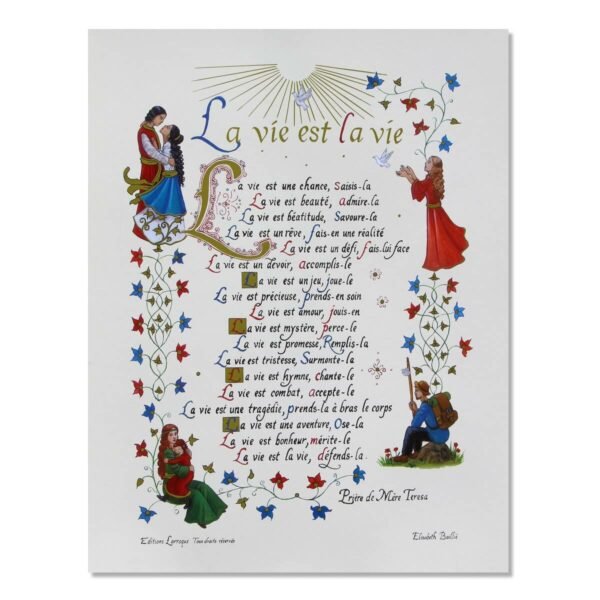 La vie est la vie
La vie est une chance, saisis-la
La vie est beauté, admire-la
La vie est béatitude, Savoure-la
La vie est un rêve, fais-en une réalité
La vie est un défi, fais-lui face
La vie est un devoir, accomplis-le
La vie est un jeu, joue-le
La vie est précieuse, prends-en soin
La vie est amour, jouis-en
La vie est mystère, perce-le
La vie est promesse, Remplis-la
La vie est tristesse, Surmonte-la
La vie est hymne, chante-le
La vie est combat, accepte-le
La vie est une tragédie, prends-la à bras le corps
La vie est une aventure, Ose-la
La vie est bonheur, mérite-le
La vie est la vie, défends-la
Prière de Mère Teresa
Editions Larroque Tous droits réservés
Elisabeth